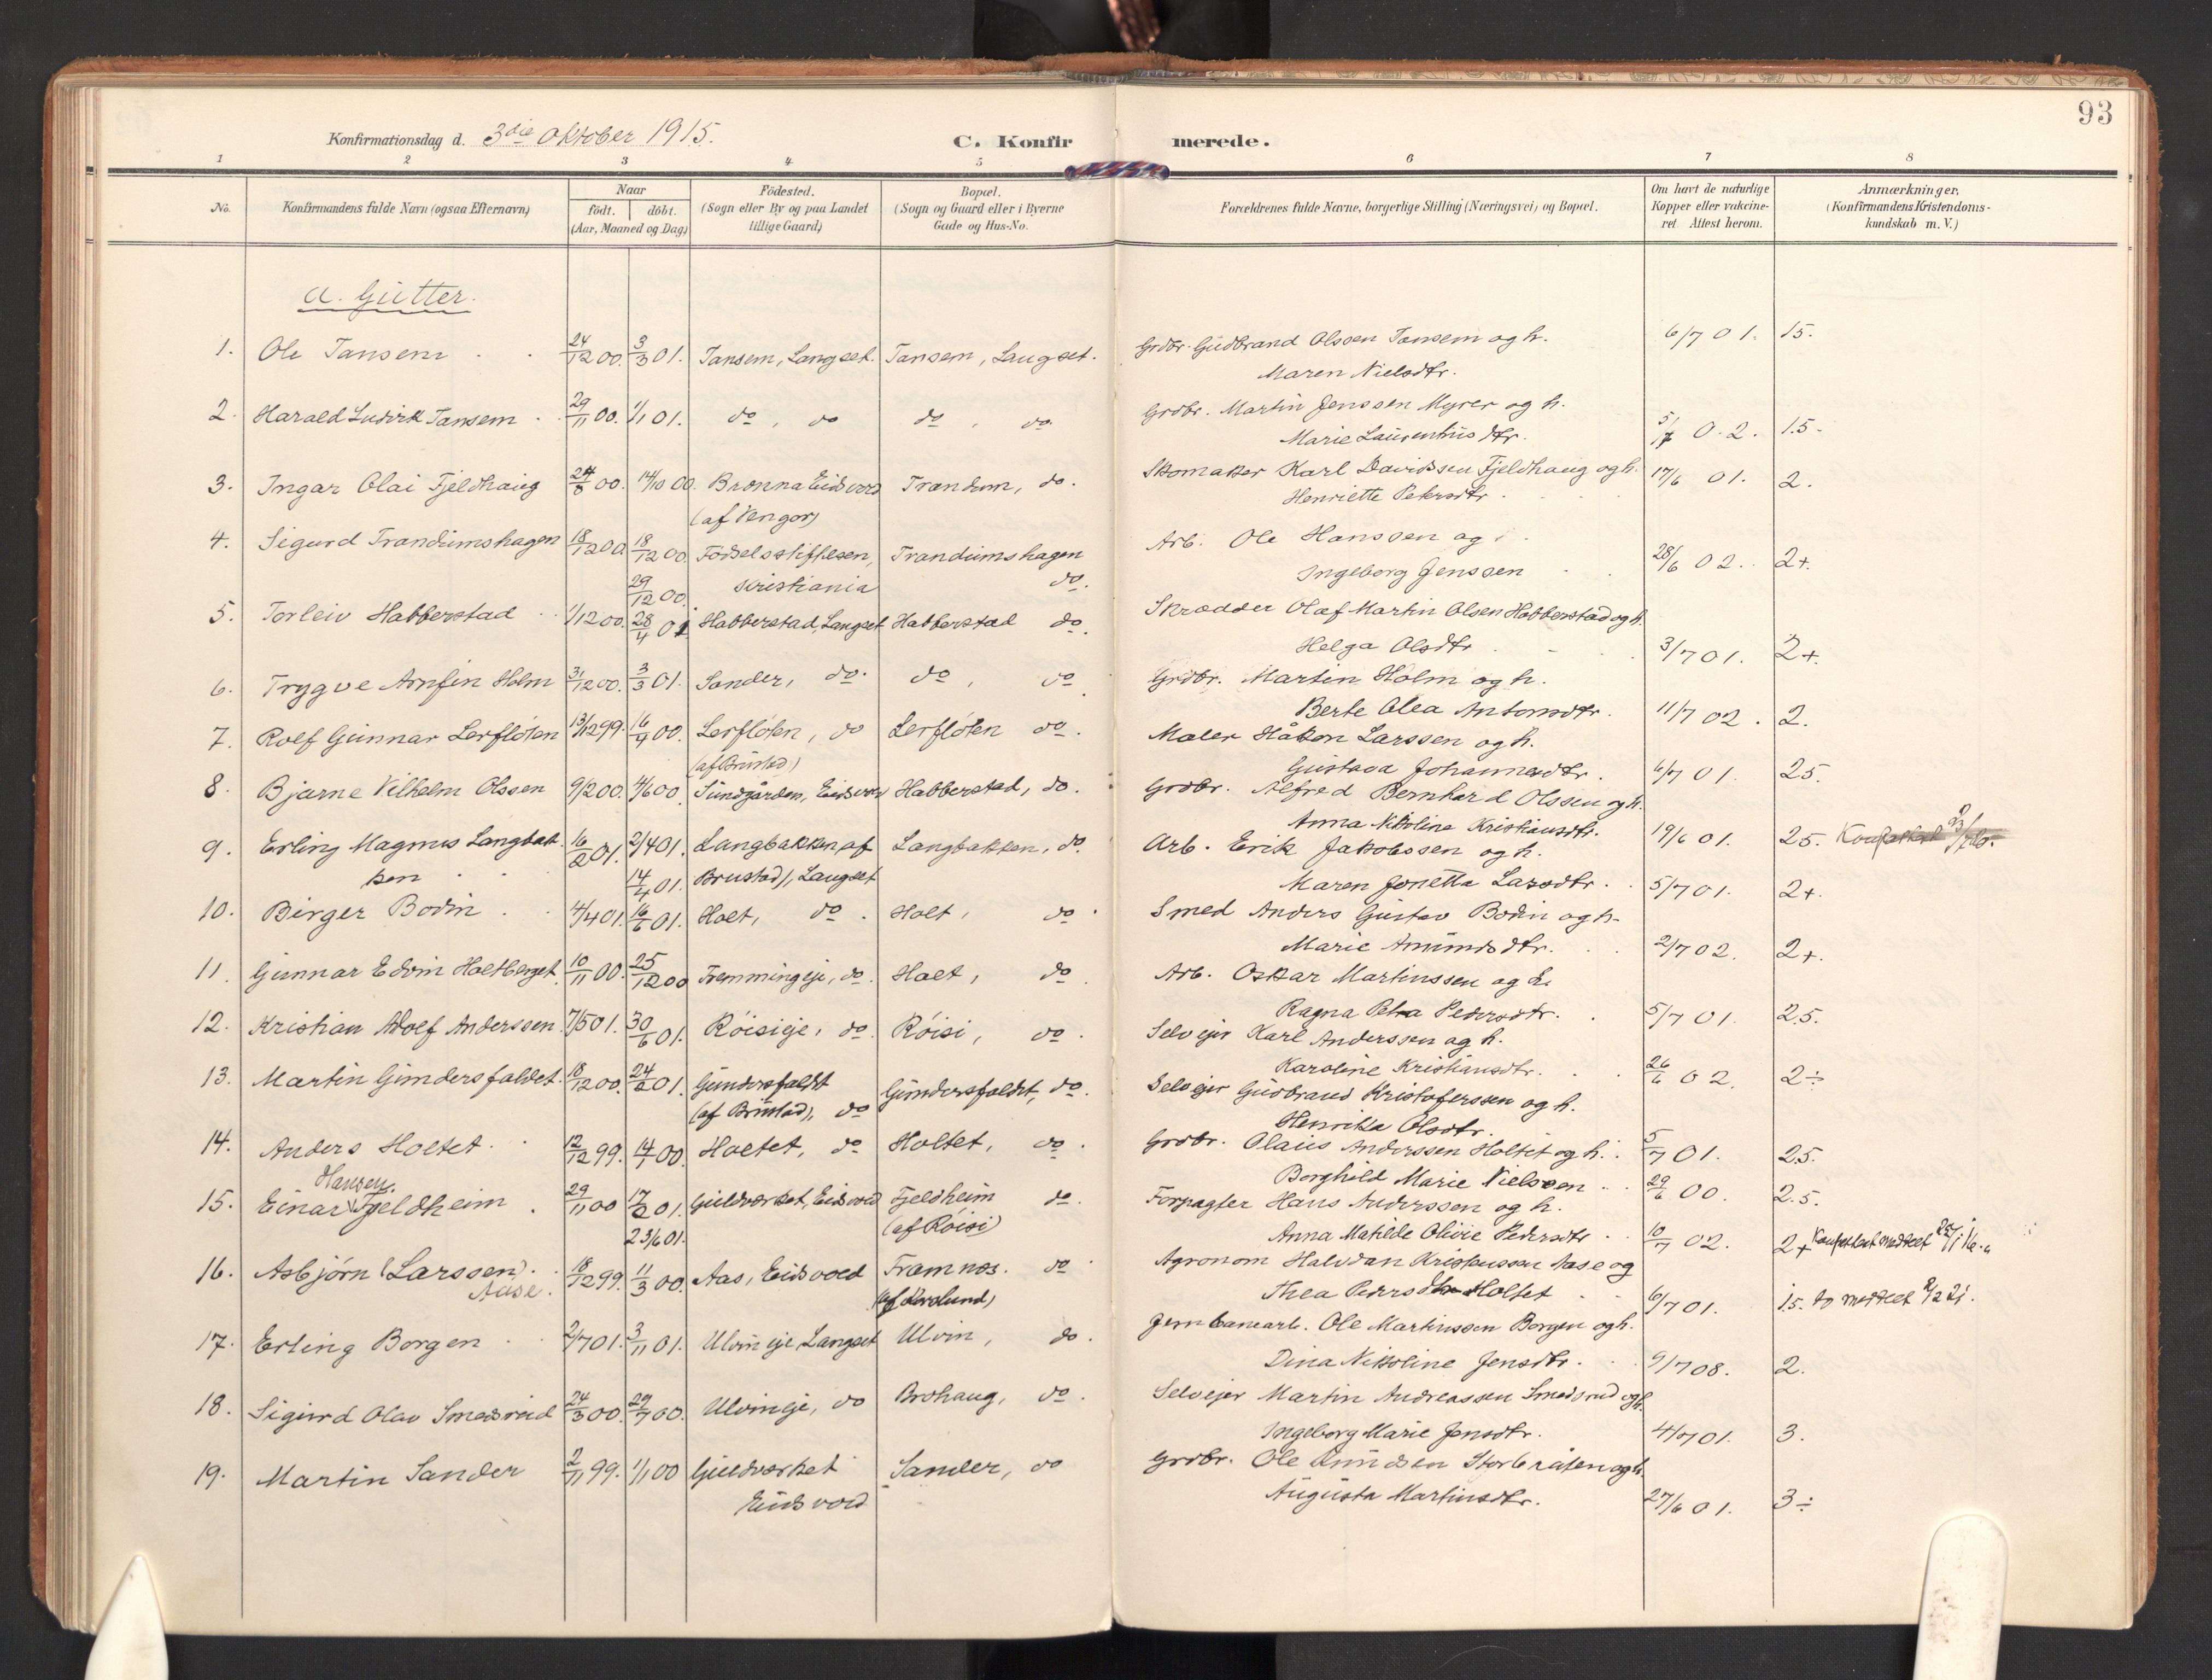 93
Konfirmationsdag d. 3die Oktober 1915. C. Konfirmerede.
1 2 3 4 5 6 7 8
No. Konfirmandens fulde Navn (ogsaa Efternavn) Naar födt. döbt. (Aar, Maaned og Dag) Födested. (Sogn eller By og paa Landet tillige Gaard) Bopæl. (Sogn og Gaard eller i Byerne Gade og Hus-No. Forældrenes fulde Navne, borgerlige Stilling (Næringsvei) og Bopæl. Om havt de naturlige Kopper eller vakcineret Attest herom. Anmærkninger, (Konfirmandens Kristendomskundskab m. V.)
a. Gutter.
1. Ole Tansem 24/12 00. 3/3 01. Tansem, Langset. Tansem, Langset. Grdbr. Gudbrand Olssen Tansem og h. 6/7 01. 15.
Maren Nielsdtr.
2. Harald Ludvik Tansem 29/11 00. 1/1 01. do, do do, do Grdbr. Martin Jenssen Myrer og h.
Marie Laurentiusdtr. 5/7 02. 15.
3. Ingar Olai Fjeldhaug 24/8 00. 14/10 00. Brønna Eidsvold Trandum, do. Skomaker Karl Davidssen Fjeldhaug og h. 17/6 01. 2.
(af Vengor) Henriette Petersdtr.
4. Sigurd Trandumshagen 18/12 00 18/12 00 Fødselsstiftelsen, Trandumshagen Arb. Ole Hanssen og
29/12 00. Kristiania do. Ingeborg Jenssen 28/6 02. 2+.
5. Torleiv Habberstad 1/12 00. 28/4 01 Habberstad, Langset Habberstad do. Skrædder Olaf Martin Olsen Habberstad og h.
Helga Olsdtr 3/7 01. 2+.
6. Trygve Arnfin Holm 31/12 00. 3/3 01. Sander, do. do, do. Grdbr. Martin Holm og h.
Berte Olea Antonsdtr. 11/7 02. 2.
7. Rolf Gunnar Lerfløten 13/12 99. 16/4 00. Lerfløten, do Lerfløten do. Maler Håkon Larssen og h.
(af Brustad) Gustava Johannesdtr. 6/7 01. 25.
8. Bjarne Vilhelm Olssen 9/2 00. 4/6 00. Sundgården, Eidsvold Habberstad, do. Grdbr. Alfred Bernhard Olssen og h.
Anna Nikoline Kristiansdtr. 19/6 01. 25.
9. Erling Magnus Langbakken 16/2 01. 2/4 01. Langbakken, af Brustad), Langset Langbakken, do. Arb. Erik Jakobssen og h.
14/4 01. Maren Jonetta Larsdtr. 5/7 01. 2+.
10. Birger Bodin 4/4 01. 16/6 01. Holt, do. Holt, do. Smed Anders Gustav Bodin og h.
Marie Amundsdtr. 2/7 02. 2+.
11. Gunnar Edvin Holtberget. 10/11 00. 25/12 00 Fremmingeje, do. Holt, do. Arb. Oskar Martinssen og h.
Ragna Petra Pedersdtr. 5/7 01. 25.
12. Kristian Adolf Anderssen. 7/5 01. 30/6 01. Røisieje, do. Røisi, do. Selvejer Karl Anderssen og h.
Karoline Kristiansdtr. 26/6 02. 2÷
13. Martin Gundersfaldet. 18/12 00. 24/2 01. Gundersfaldt (af Brustad), do Gundersfaldet, do. Selvejer Gudbrand Kristoferssen og h.
Henrika Olsdtr. 5/7 01. 25.
14. Anders Holtet. 12/12 99. 14/1 00. Holtet, do Holtet, do. Grdbr. Olaus Anderssen Holtet og h.
Borghild Marie Nielssen 29/6 00. 2.5.
15. Einar Hansen Fjeldheim. 29/11 00 17/2 01. Guldværket, Eidsvold Fjeldheim do. Forpagter Hans Anderssen og h.
23/6 01. (af Røisi) Anna Matilde Olivie Pedersdtr. 10/7 02. 2+
16. Asbjørn (Larssen). Aase. 18/12 99. 11/3 00. Aas, Eidsvold Framnes. do Agronom Halvdan Kristenssen Aase og
Thea Pedersdtr Holtet 6/7 01. 15. do meddelt
17. Erling Borgen 2/7 01. 3/11 01. Ulvin eje, Langset Ulvin, do. Jernbanearb. Ole Martinssen Borgen og h.
Dina Nikoline Jensdtr. 9/7 08. 2.
18. Sigurd Olav Smedsrud 24/3 00. 29/7 00. Ulvineje, do Brohaug, do. Selvejer Martin Andreassen Smedsrud og h.
Ingeborg Marie Jensdtr. 4/7 01. 3.
19. Martin Sander 2/11 99. 1/1 00 Guldværket Sander, do Grdbr. Ole Knudsen Storbråten og h.
Eidsvold Augusta Martinsdtr. 27/6 01. 3÷